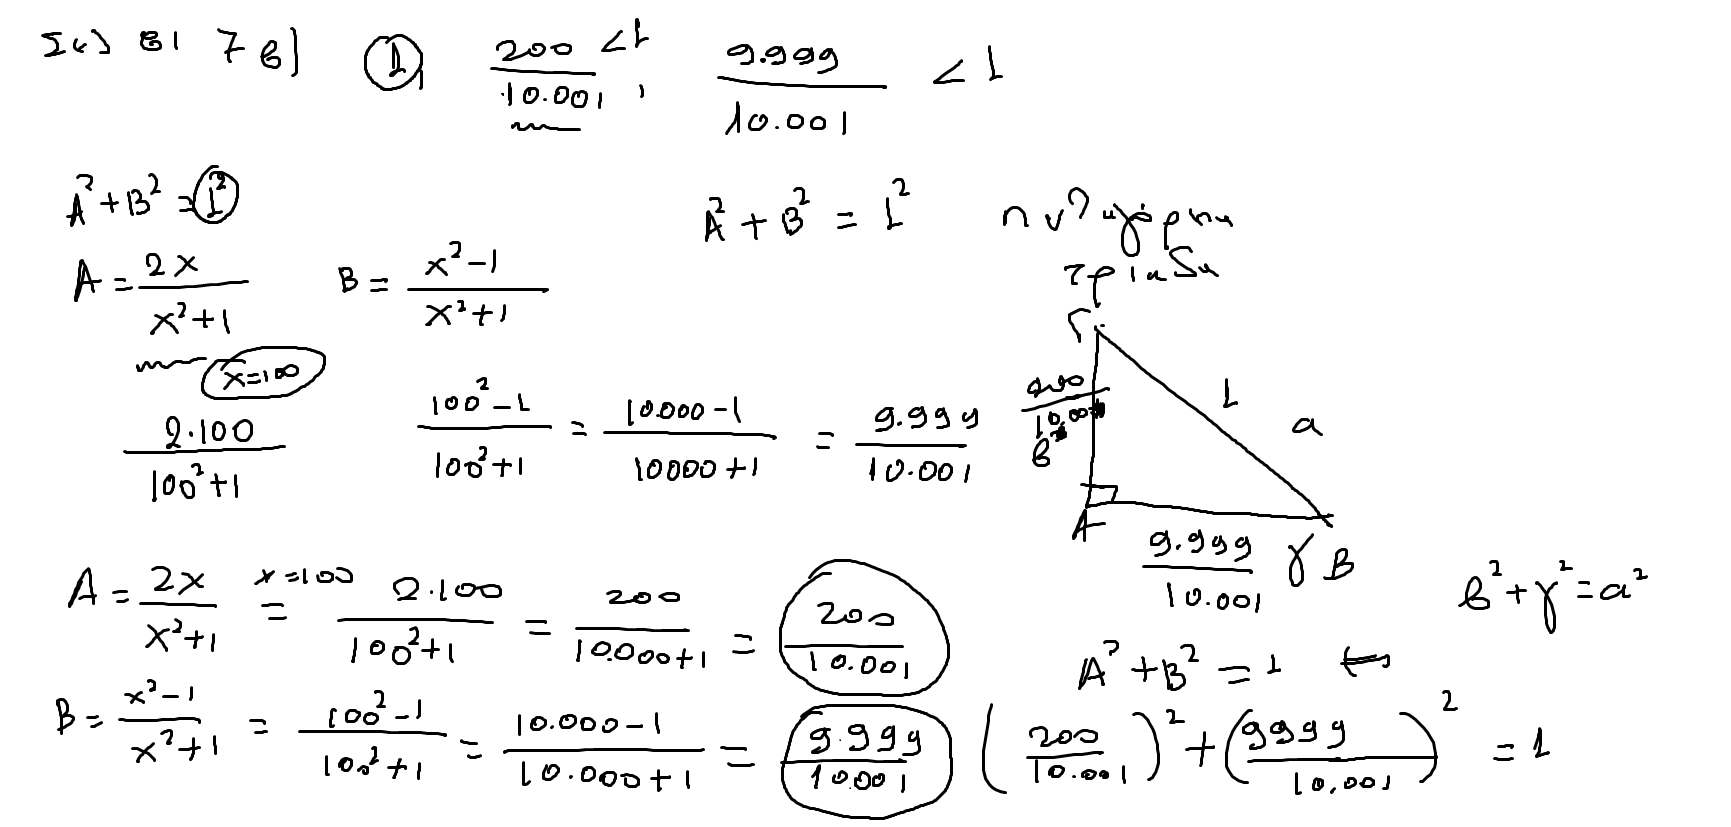 Σελ 81 7 β) ① 200/10.001 < 1, 9.999/10.001 < 1
A² + B² = 1² A² + B² = 1² πυθαγόρεια
τριάδα
A = 2x/(x²+1) B = (x²-1)/(x²+1)
x=100
2·100/(100²+1) (100²-1)/(100²+1) = (10.000-1)/(10000+1) = 9.999/10.001
Γ
200/10.001 1
β a
A 9.999/10.001 γ B
β² + γ² = a²
A = 2x/(x²+1) =^{x=100} 2·100/(100²+1) = 200/(10.000+1) = 200/10.001
A² + B² = 1 ←
B = (x²-1)/(x²+1) = (100²-1)/(100²+1) = (10.000-1)/(10.000+1) = 9.999/10.001
(200/10.001)² + (9999/10.001)² = 1